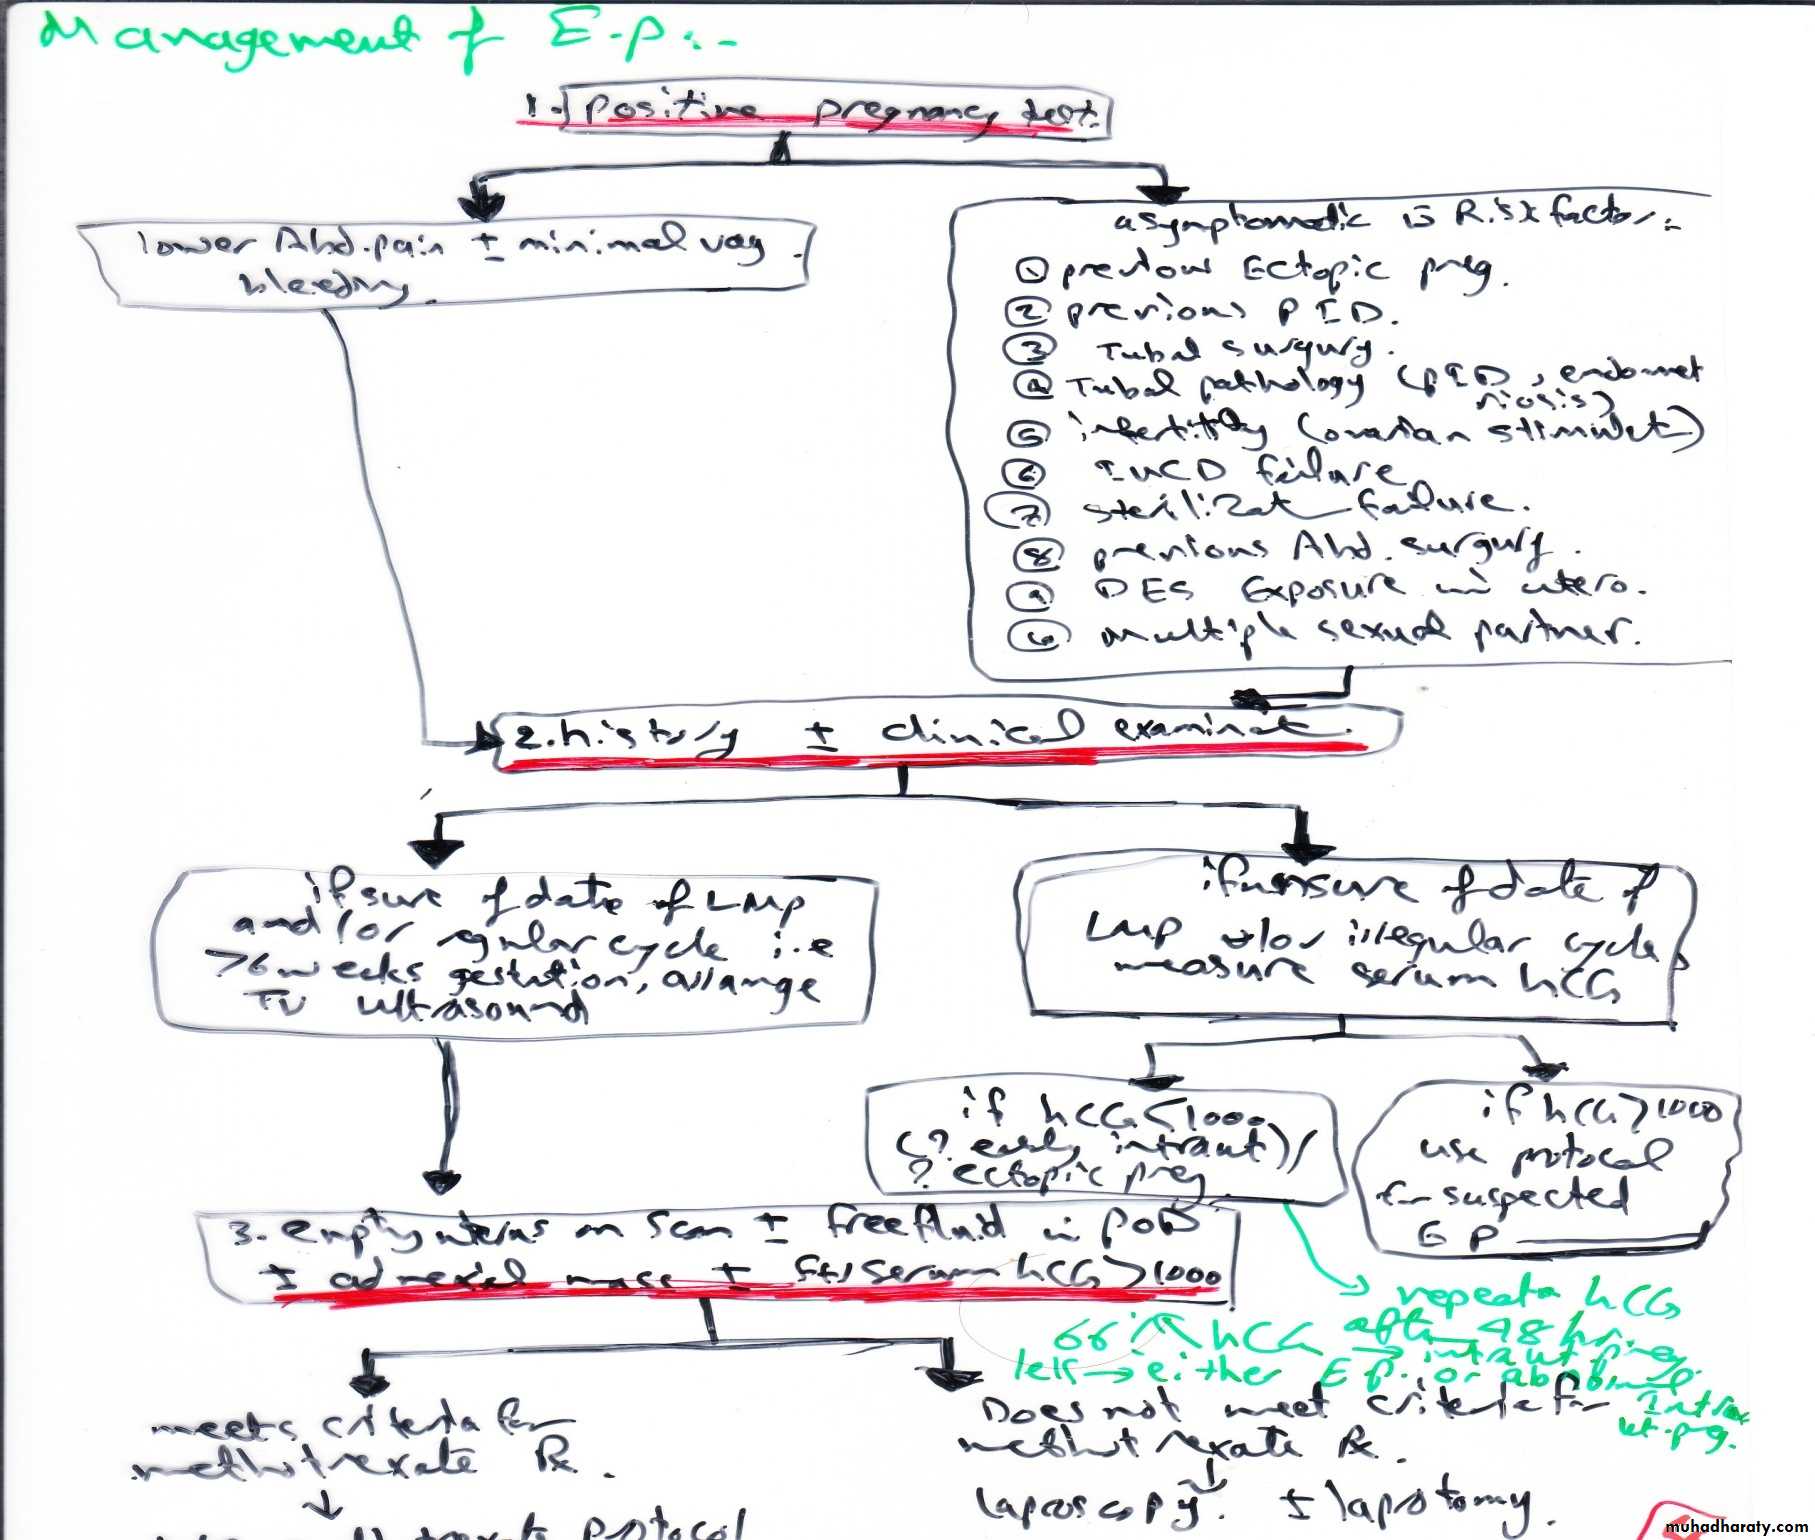 Management of E.p :-
1.) positive pregnancy test.
lower Abd. pain ± minimal vag.
bleeding.
asymptomatic c̄ Risk factor :-
① previous Ectopic preg.
② previous PID.
③ Tubal surgury.
④ Tubal pathology (PID, endomet
riosis)
⑤ infertility (ovarian stimulat)
⑥ IUCD failure
⑦ sterilizat failure.
⑧ previous Abd. surgury.
⑨ DES Exposure in utero.
⑩ multiple sexual partner.
2. history ± clinical examinat.
if sure of date of LMP
and/or regular cycle i.e
>6 weeks gestation, arrange
TV ultrasound
if unsure of date of
LMP +/or irregular cycle,
measure serum hCG
if hCG <1000
(? early intraut)/
? ectopic preg
if hCG >1000
use protocal
for suspected
E P
3. empty uterus on scan ± free fluid in POD
± adnexial mass ± serum hCG >1000
repeat hCG
after 48 hr.
66 % ↑ hCG → intraut. preg.
less → either E.p. or abnormal
Intra
ut. preg.
meets criteria for
methotrexate Rx.
↓
protocol
Does not meet criteria for
methotrexate Rx.
↓
laparoscopy. ± laparotomy.
muhadharaty.com